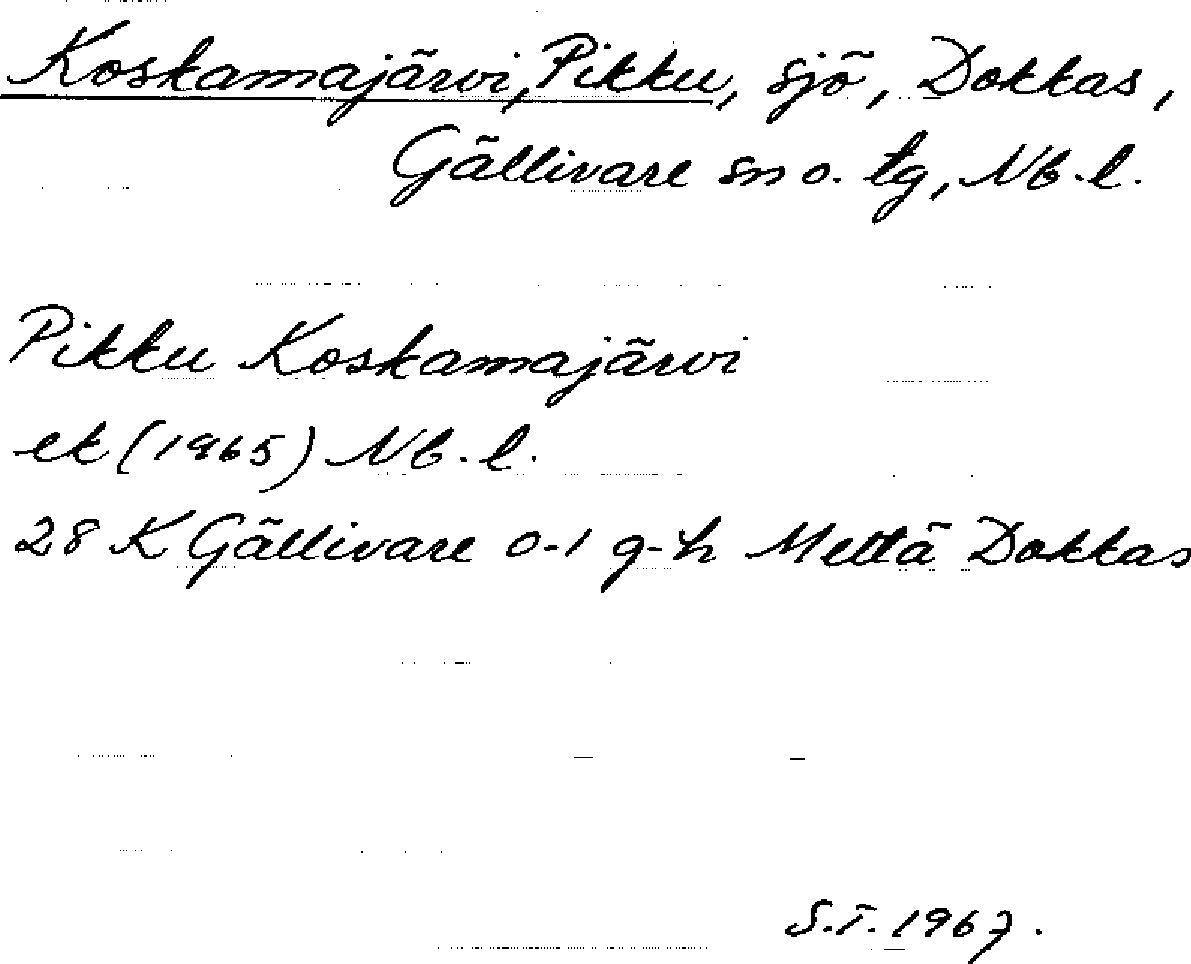 Koskamajärvi, Pikku, sjö, Dokkas,
Gällivare sn o. tg, Nb. l.
Pikku Koskamajärvi
ek (1965) Nb. l.
28 K Gällivare 0-1 g-h Mettä Dokkas
S.T. 1967.